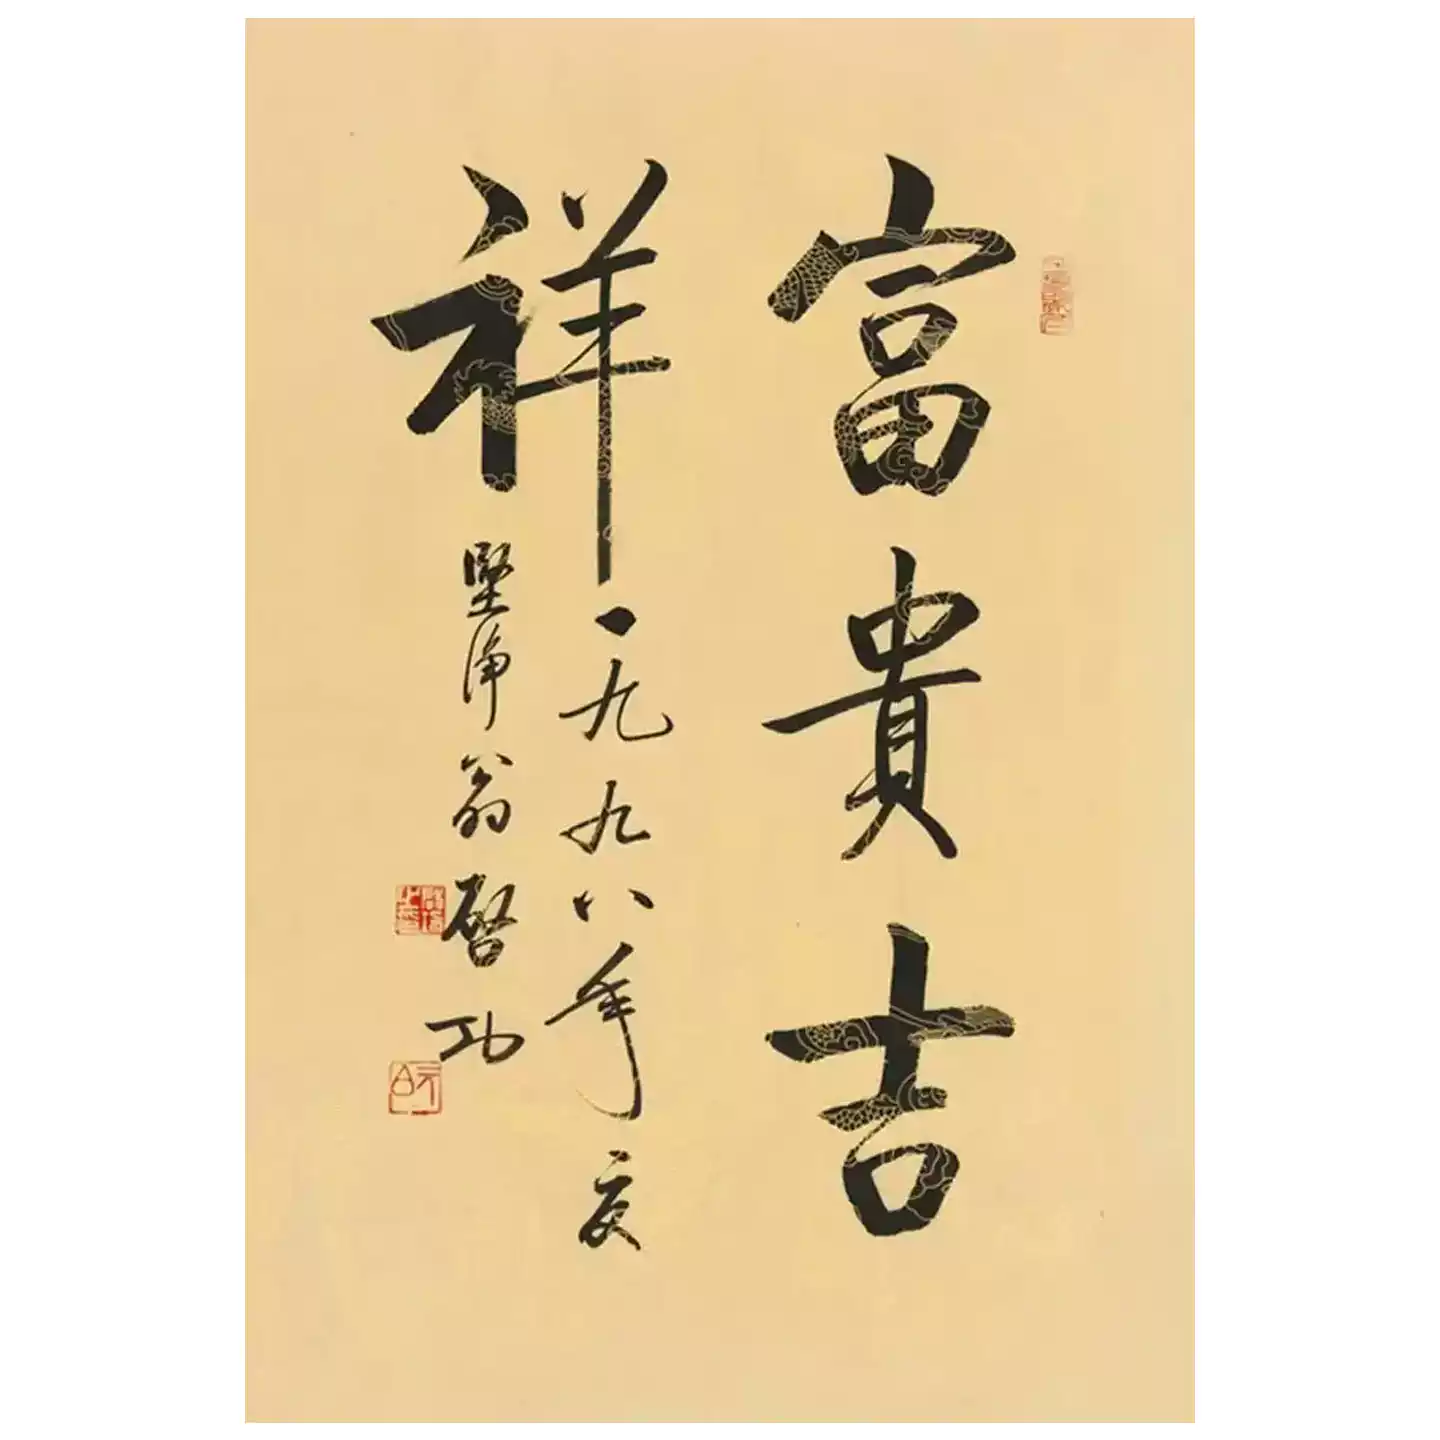 富貴吉
祥
一九九八年夏
堅净翁啓功